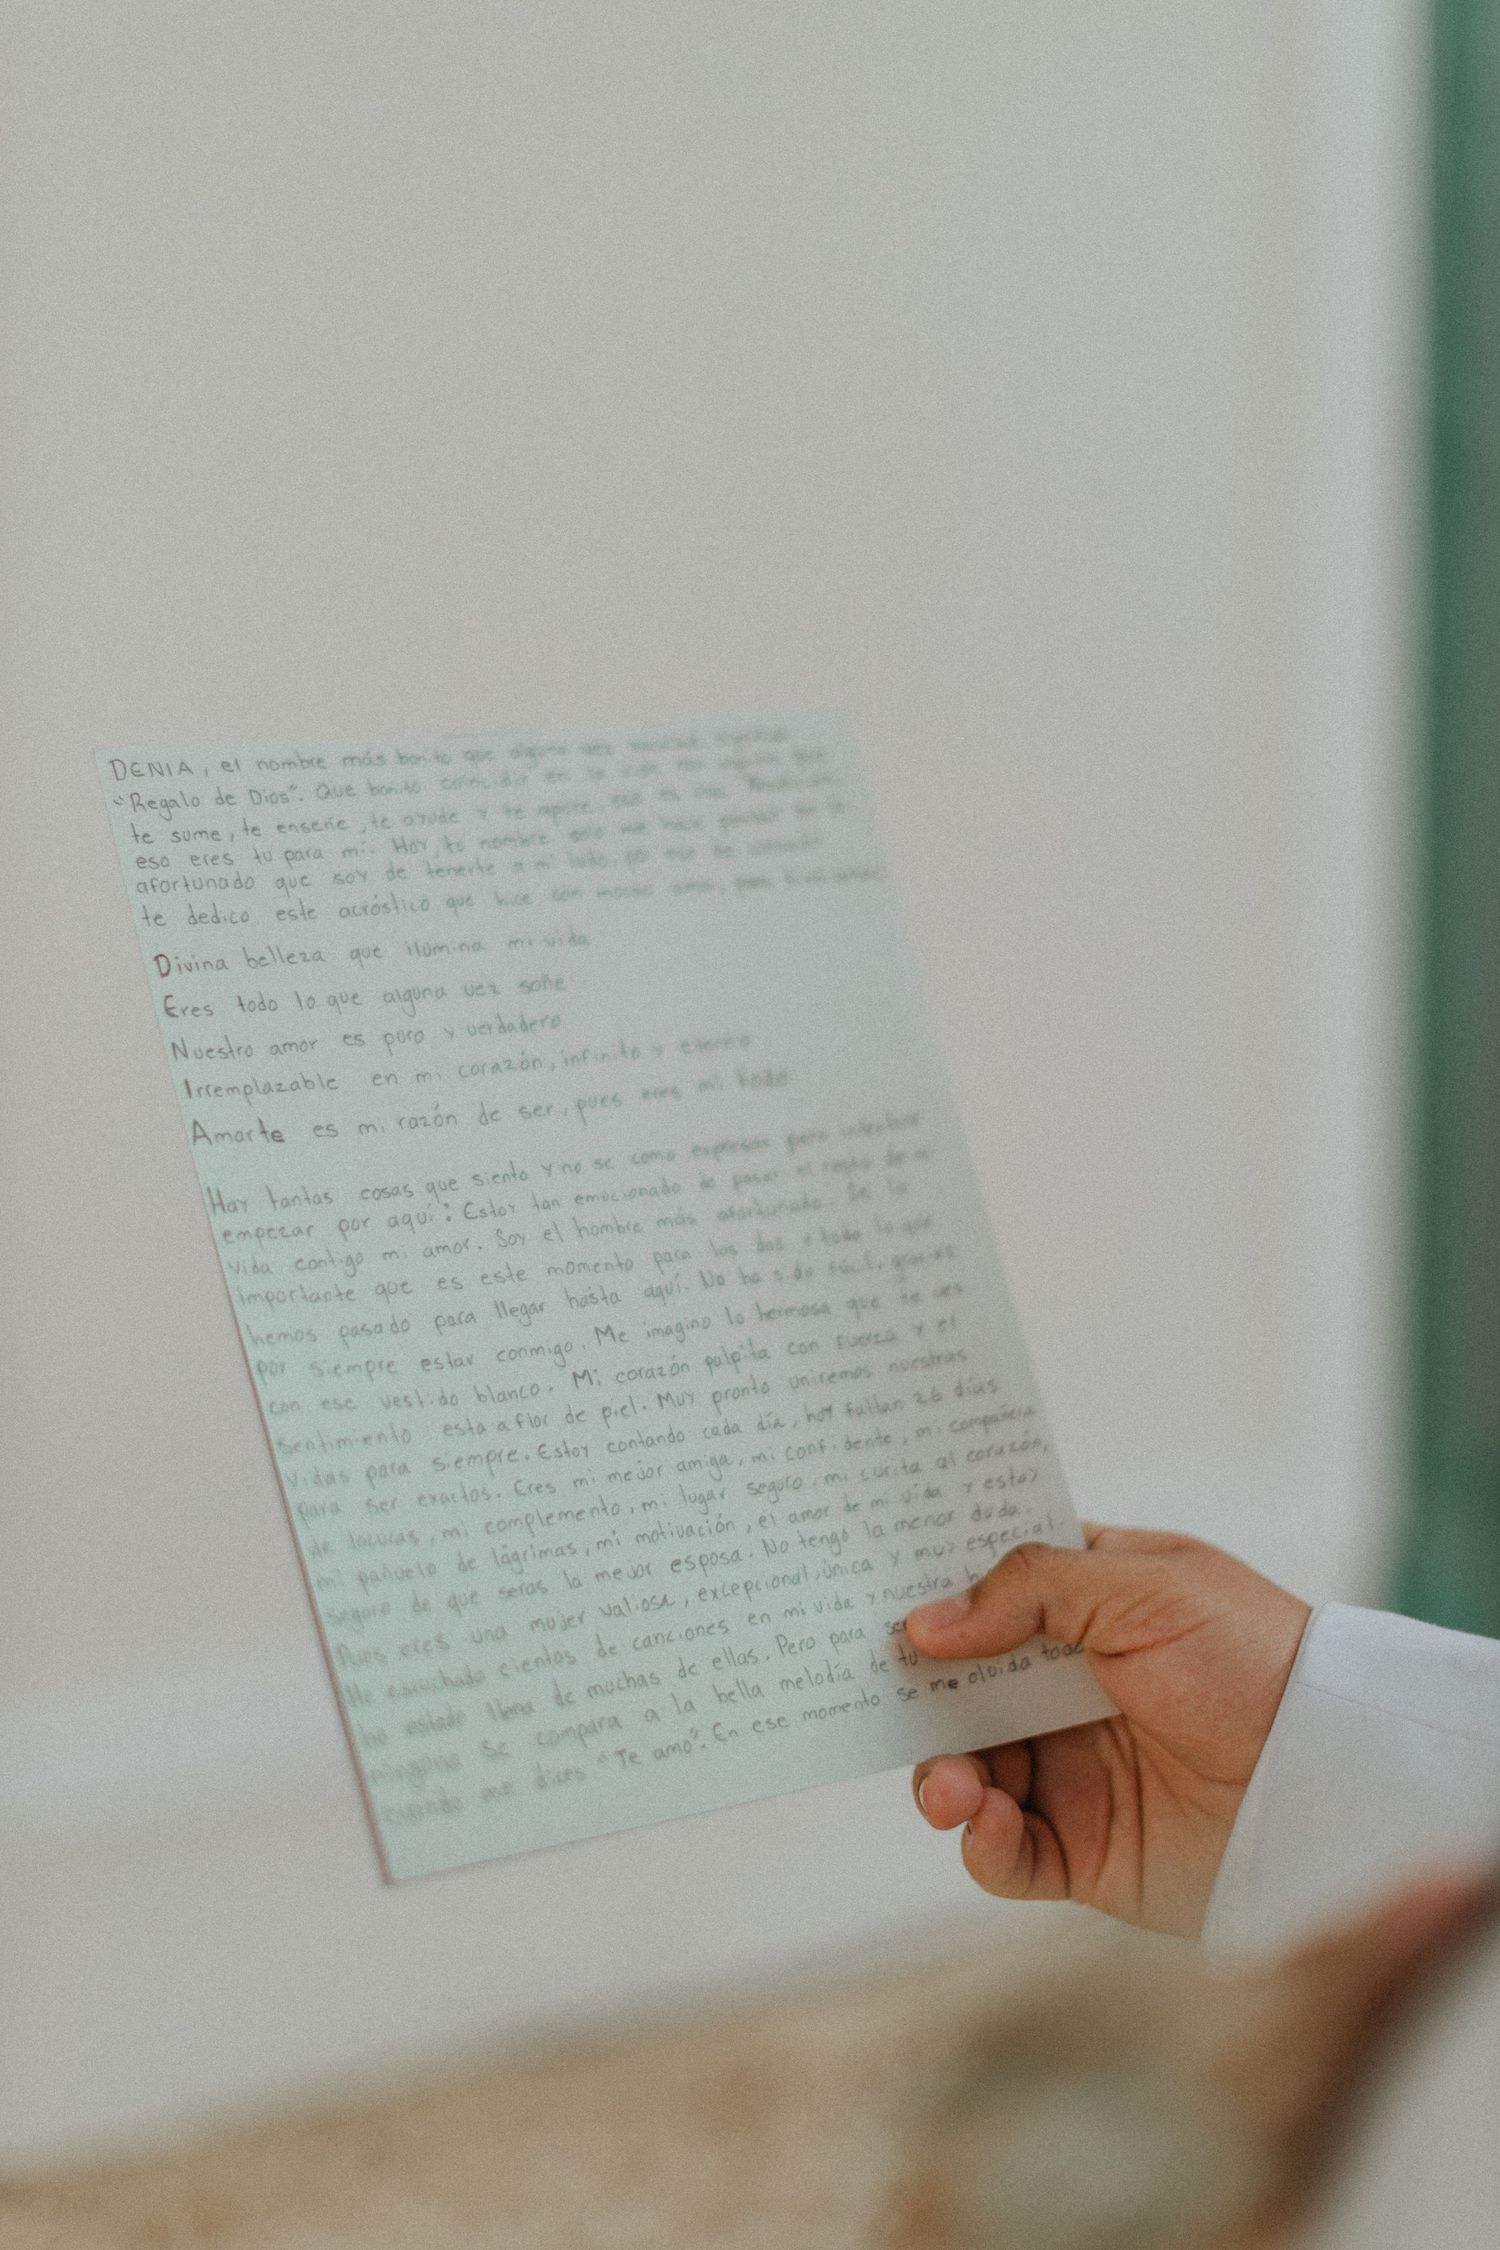 DENIA, el nombre más bonito que alguna vez
"Regalo de Dios". Que bonito coincidir en la vida con alguien que
te sume, te enseñe, te ayude y te aporte, eso es
eso eres tu para mi. Hoy, tu nombre solo me hace pensar en lo
afortunado que soy de tenerte a mi lado, por eso
te dedico este acróstico que hice con mucho amor, para ti mi
Divina belleza que ilumina mi vida
Eres todo lo que alguna vez soñe
Nuestro amor es puro y verdadero
Irremplazable en mi corazón, infinito y eterno
Amarte es mi razón de ser, pues eres mi todo
Hay tantas cosas que siento y no se como expresar pero
empezar por aquí: Estoy tan emocionado de pasar el resto de mi
vida contigo mi amor. Soy el hombre más afortunado. Se lo
importante que es este momento para los dos y todo lo que
hemos pasado para llegar hasta aquí. No ha sido fácil, gracias
por siempre estar conmigo. Me imagino lo hermosa que te ves
con ese vestido blanco. Mi corazón palpita con fuerza y el
sentimiento esta a flor de piel. Muy pronto uniremos nuestras
vidas para siempre. Estoy contando cada día, hoy faltan 26 días
para ser exactos. Eres mi mejor amiga, mi confidente, mi compañera
de locuras, mi complemento, mi lugar seguro, mi curita al corazón,
mi pañuelo de lágrimas, mi motivación, el amor de mi vida y estoy
seguro de que seras la mejor esposa. No tengo la menor duda.
Pues eres una mujer valiosa, excepcional, única y muy especial.
He escuchado cientos de canciones en mi vida y nuestra
ha estado llena de muchas de ellas. Pero para
ninguna se compara a la bella melodía de tu
cuando me dices "Te amo". En ese momento se me olvida